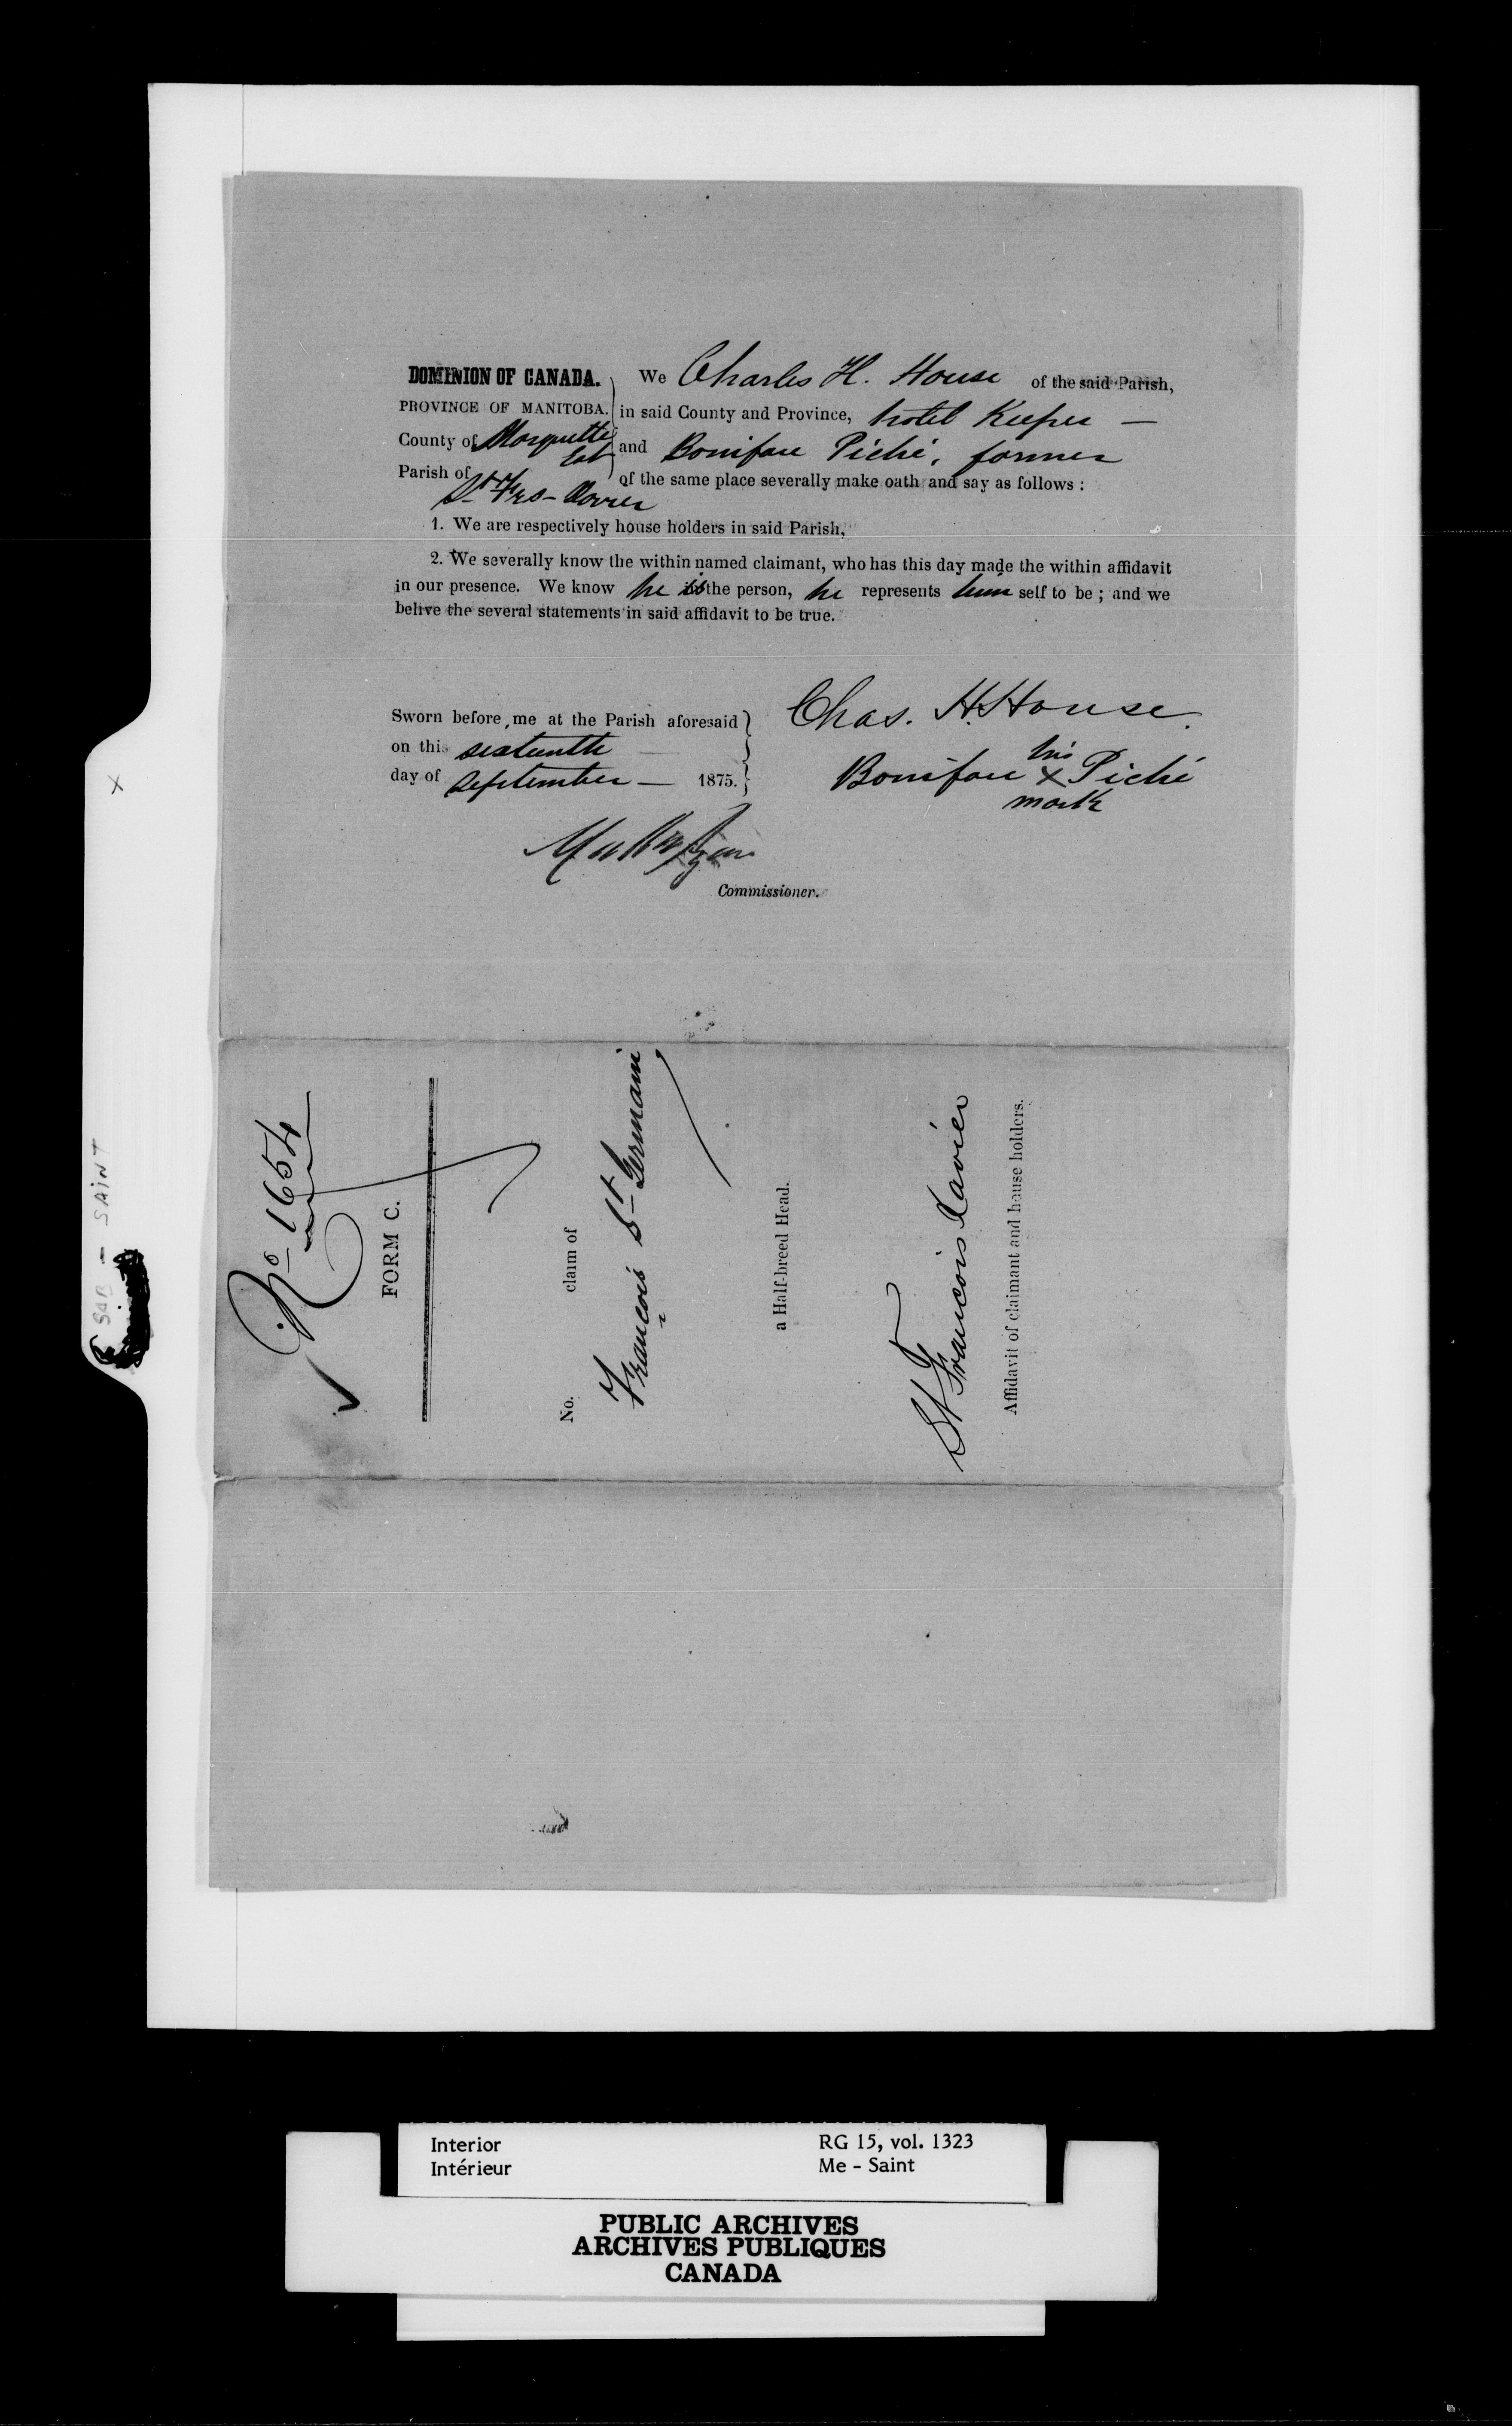 DOMINION OF CANADA.
PROVINCE OF MANITOBA.
County of Marquette
Est
Parish of
St Frs-Xavier
We Charles H. House of the said Parish,
in said County and Province, hotel Keeper —
and Boniface Piché, farmer
of the same place severally make oath and say as follows :
1. We are respectively house holders in said Parish,
2. We severally know the within named claimant, who has this day made the within affidavit
in our presence. We know he is the person, he represents him self to be ; and we
belive the several statements in said affidavit to be true.
Sworn before me at the Parish aforesaid
on this sixteenth
day of September — 1875.
Chas. H. House.
his
Boniface X Piché
mark
Commissioner.
No 1654
FORM C.
No. claim of
François St Germain
a Half-breed Head.
St François Xavier
Affidavit of claimant and house holders.
SAB - SAINT
X
Interior
Intérieur
RG 15, vol. 1323
Me - Saint
PUBLIC ARCHIVES
ARCHIVES PUBLIQUES
CANADA